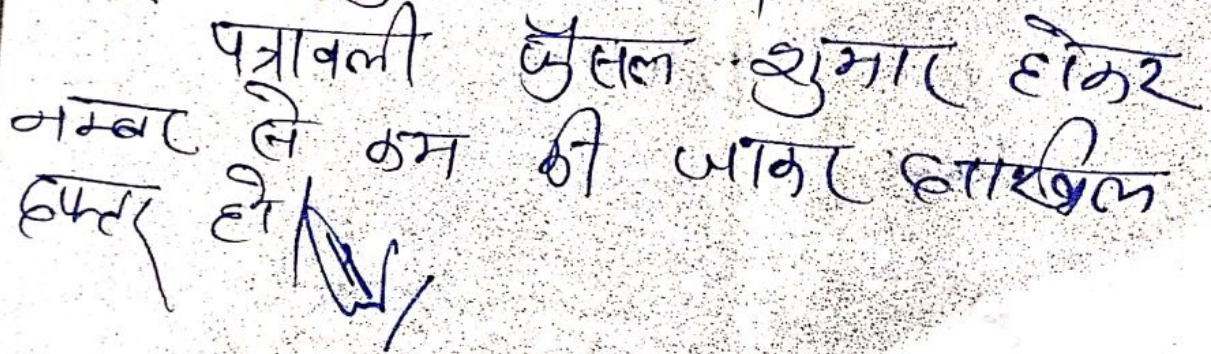 पत्रावली फैसल शुमार होकर
नम्बर से कम की जाकर दाखिल
दफ्तर हो।